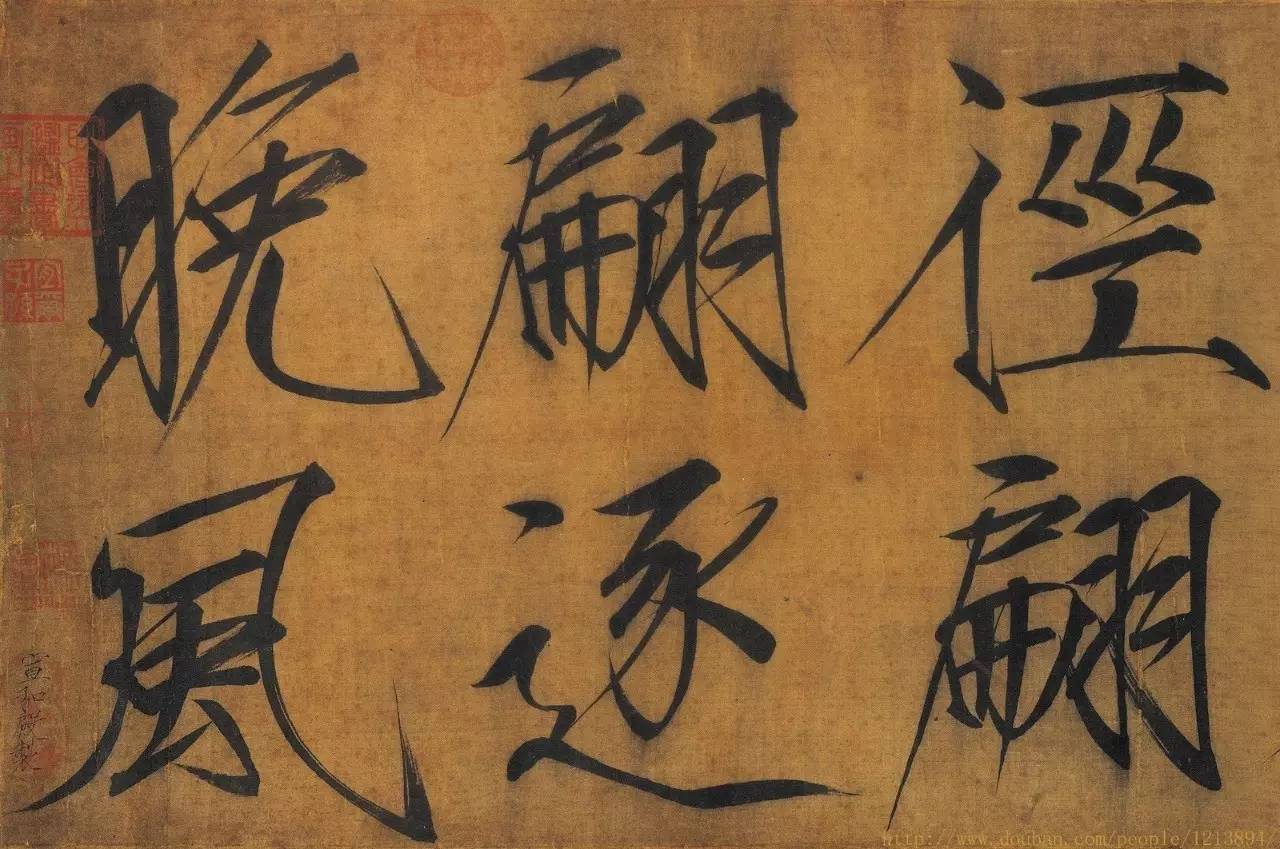 徑翩
翩逐
晚風
宣和殿製
http://www.douban.com/people/1213894/